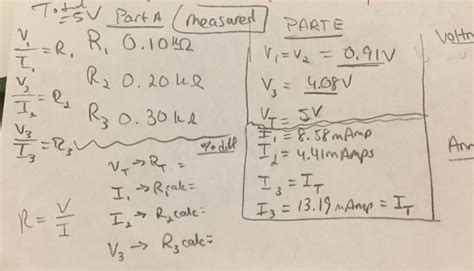 Total = 5V
Part A (measured)
V₁/I₁ = R₁
R₁ 0.10 kΩ
V₂/I₂ = R₂
R₂ 0.20 kΩ
V₃/I₃ = R₃
R₃ 0.30 kΩ
% diff
V_T → R_T =
I₁ → R₁calc =
I₂ → R₂calc =
V₃ → R₃calc =
R = V/I
PART E
V₁ = V₂ = 0.91V
V₃ = 4.08V
V_T = 5V
I₁ = 8.58 mAmp
I₂ = 4.41 mAmps
I₃ = I_T
I₃ = 13.19 mAmp = I_T